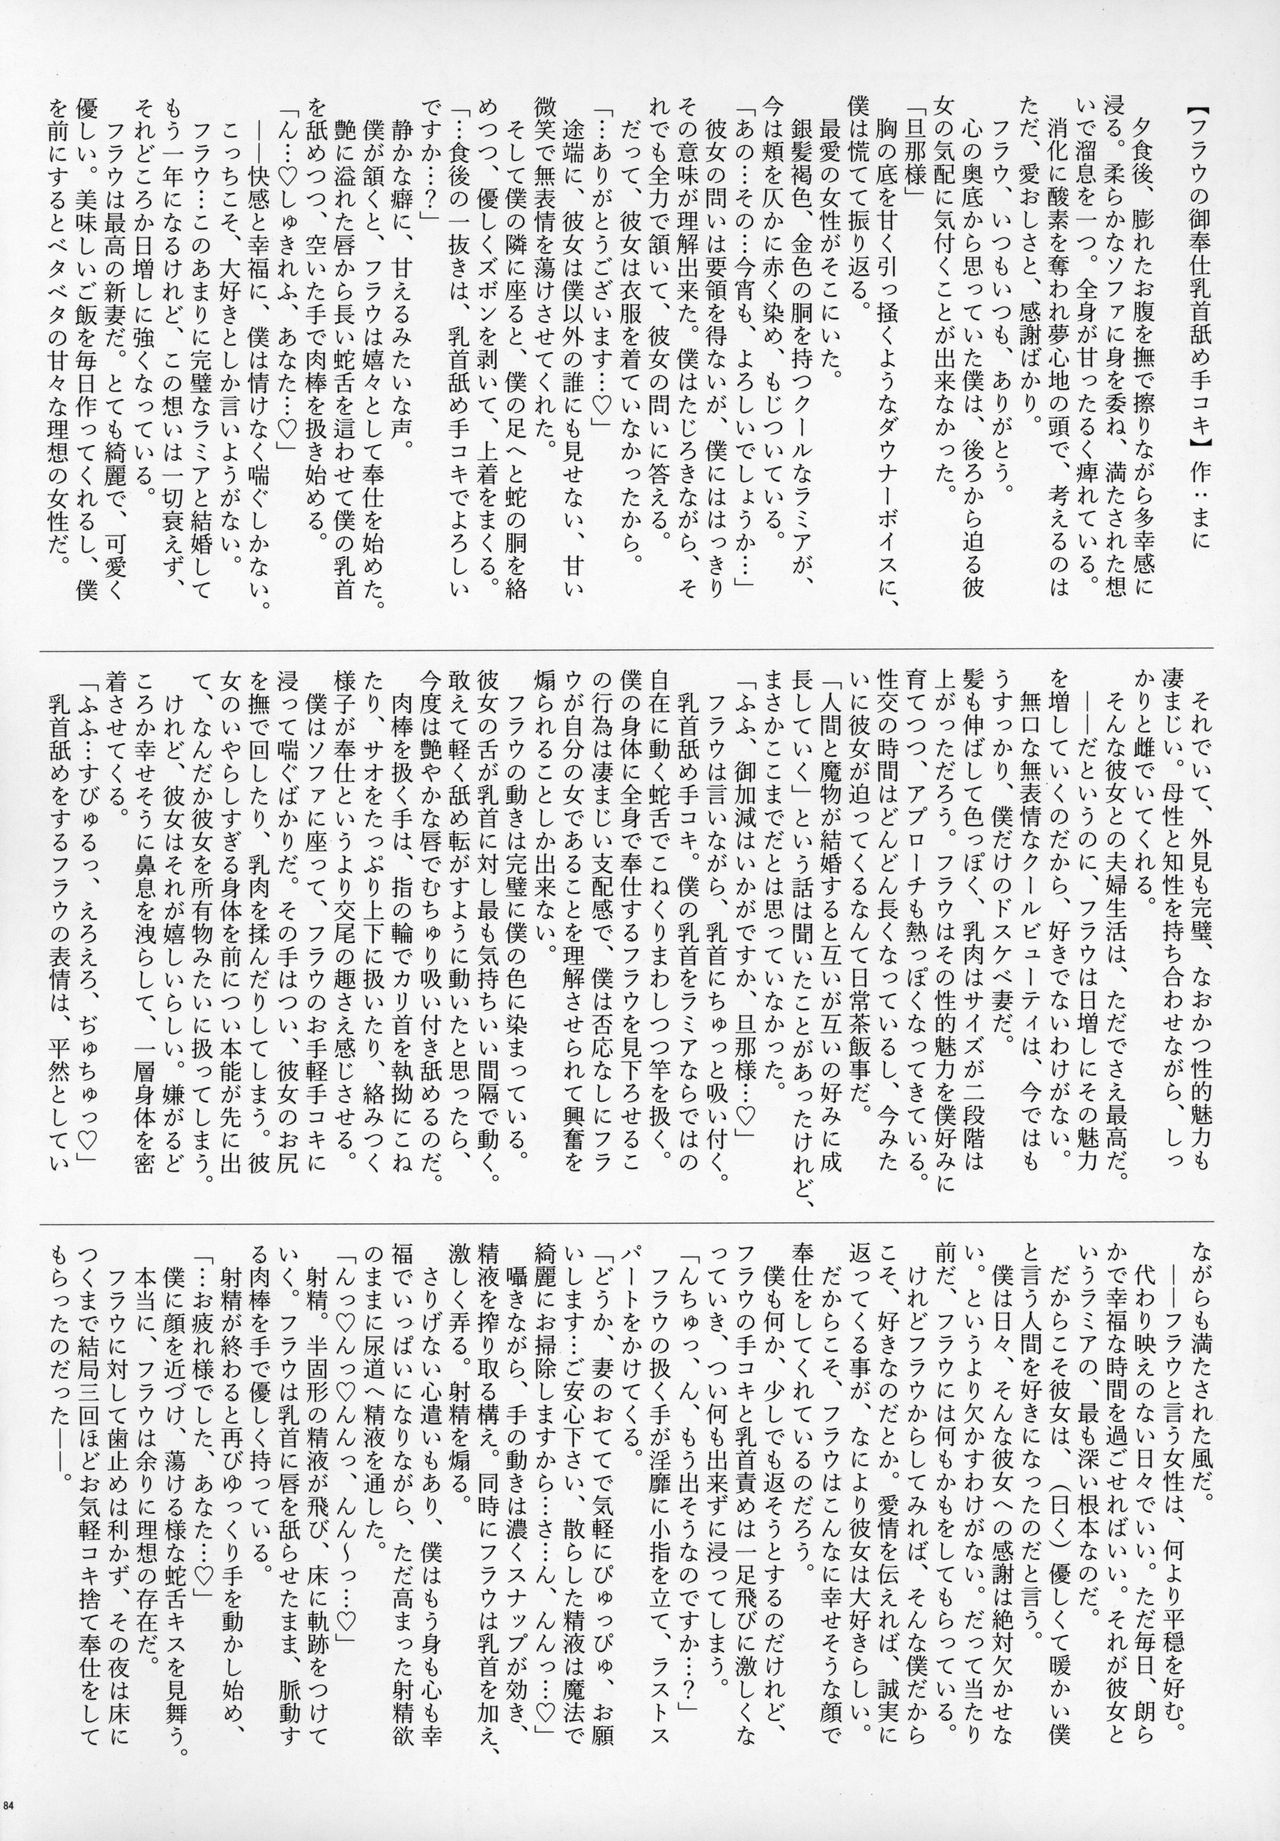 【フラウの御奉仕乳首舐め手コキ】作：まに
夕食後、膨れたお腹を撫で擦りながら多幸感に
浸る。柔らかなソファに身を委ね、満たされた想
いで溜息を一つ。全身が甘ったるく痺れている。
消化に酸素を奪われ夢心地の頭で、考えるのは
ただ、愛おしさと、感謝ばかり。
フラウ、いつもいつも、ありがとう。
心の奥底から思っていた僕は、後ろから迫る彼
女の気配に気付くことが出来なかった。
「旦那様」
胸の底を甘く引っ掻くようなダウナーボイスに、
僕は慌てて振り返る。
最愛の女性がそこにいた。
銀髪褐色、金色の胴を持つクールなラミアが、
今は頬を仄かに赤く染め、もじついている。
「あの…その…今宵も、よろしいでしょうか…」
彼女の問いは要領を得ないが、僕にははっきり
その意味が理解出来た。僕はたじろきながら、そ
れでも全力で頷いて、彼女の問いに答える。
だって、彼女は衣服を着ていなかったから。
「…ありがとうございます…♡」
途端に、彼女は僕以外の誰にも見せない、甘い
微笑で無表情を蕩けさせてくれた。
そして僕の隣に座ると、僕の足へと蛇の胴を絡
めつつ、優しくズボンを剥いて、上着をまくる。
「…食後の一抜きは、乳首舐め手コキでよろしい
ですか…？」
静かな癖に、甘えるみたいな声。
僕が頷くと、フラウは嬉々として奉仕を始めた。
艶に溢れた唇から長い蛇舌を這わせて僕の乳首
を舐めつつ、空いた手で肉棒を扱き始める。
「ん…♡しゅきれふ、あなた…♡」
――快感と幸福に、僕は情けなく喘ぐしかない。
こっちこそ、大好きとしか言いようがない。
フラウ…このあまりに完璧なラミアと結婚して
もう一年になるけれど、この想いは一切衰えず、
それどころか日増しに強くなっている。
フラウは最高の新妻だ。とても綺麗で、可愛く
優しい。美味しいご飯を毎日作ってくれるし、僕
を前にするとベタベタの甘々な理想の女性だ。
それでいて、外見も完璧、なおかつ性的魅力も
凄まじい。母性と知性を持ち合わせながら、しっ
かりと雌でいてくれる。
そんな彼女との夫婦生活は、ただでさえ最高だ。
――だというのに、フラウは日増しにその魅力
を増していくのだから、好きでないわけがない。
無口な無表情なクールビューティは、今ではも
うすっかり、僕だけのドスケベ妻だ。
髪も伸ばして色っぽく、乳肉はサイズが二段階は
上がっただろう。フラウはその性的魅力を僕好みに
育てつつ、アプローチも熱っぽくなってきている。
性交の時間はどんどん長くなっているし、今みた
いに彼女が迫ってくるなんて日常茶飯事だ。
「人間と魔物が結婚すると互いが互いの好みに成
長していく」という話は聞いたことがあったけれど、
まさかここまでだとは思っていなかった。
「ふふ、御加減はいかがですか、旦那様…♡」
フラウは言いながら、乳首にちゅっと吸い付く。
乳首舐め手コキ。僕の乳首をラミアならではの
自在に動く蛇舌でこねくりまわしつつ竿を扱く。
僕の身体に全身で奉仕するフラウを見下ろせるこ
の行為は凄まじい支配感で、僕は否応なしにフラ
ウが自分の女であることを理解させられて興奮を
煽られることしか出来ない。
フラウの動きは完璧に僕の色に染まっている。
彼女の舌が乳首に対し最も気持ちいい間隔で動く。
敢えて軽く舐め転がすように動いたと思ったら、
今度は艶やかな唇でむちゅり吸い付き舐めるのだ。
肉棒を扱く手は、指の輪でカリ首を執拗にこね
たり、サオをたっぷり上下に扱いたり、絡みつく
様子が奉仕というより交尾の趣さえ感じさせる。
僕はソファに座って、フラウのお手軽手コキに
浸って喘ぐばかりだ。その手はつい、彼女のお尻
を撫で回したり、乳肉を揉んだりしてしまう。彼
女のいやらしすぎる身体を前につい本能が先に出
て、なんだか彼女を所有物みたいに扱ってしまう。
けれど、彼女はそれが嬉しいらしい。嫌がるど
ころか幸せそうに鼻息を洩らして、一層身体を密
着させてくる。
「ふふ…すびゅるっ、えろえろ、ぢゅちゅっ♡」
乳首舐めをするフラウの表情は、平然としてい
ながらも満たされた風だ。
――フラウと言う女性は、何より平穏を好む。
代わり映えのない日々でいい。ただ毎日、朗ら
かで幸福な時間を過ごせればいい。それが彼女と
いうラミアの、最も深い根本なのだ。
だからこそ彼女は、（曰く）優しくて暖かい僕
と言う人間を好きになったのだと言う。
僕は日々、そんな彼女への感謝は絶対欠かせな
い。というより欠かすわけがない。だって当たり
前だ、フラウには何もかもをしてもらっている。
けれどフラウからしてみれば、そんな僕だから
こそ、好きなのだとか。愛情を伝えれば、誠実に
返ってくる事が、なにより彼女は大好きらしい。
だからこそ、フラウはこんなに幸せそうな顔で
奉仕をしてくれているのだろう。
僕も何か、少しでも返そうとするのだけれど、
フラウの手コキと乳首責めは一足飛びに激しくな
っていき、つい何も出来ずに浸ってしまう。
「んちゅっ、ん、もう出そうなのですか…？」
フラウの扱く手が淫靡に小指を立て、ラストス
パートをかけてくる。
「どうか、妻のおててで気軽にぴゅっぴゅ、お願
いします…ご安心下さい、散らした精液は魔法で
綺麗にお掃除しますから…さ…ん、んんっ…♡」
囁きながら、手の動きは濃くスナップが効き、
精液を搾り取る構え。同時にフラウは乳首を加え、
激しく弄る。射精を煽る。
さりげない心遣いもあり、僕はもう身も心も幸
福でいっぱいになりながら、ただ高まった射精欲
のままに尿道へ精液を通した。
「んっ♡んっ♡んんっ、んん～っ…♡」
射精。半固形の精液が飛び、床に軌跡をつけて
いく。フラウは乳首に唇を舐らせたまま、脈動す
る肉棒を手で優しく持っている。
射精が終わると再びゆっくり手を動かし始め、
「…お疲れ様でした、あなた…♡」
僕に顔を近づけ、蕩ける様な蛇舌キスを見舞う。
本当に、フラウは余りに理想の存在だ。
フラウに対して歯止めは利かず、その夜は床に
つくまで結局三回ほどお気軽コキ捨て奉仕をして
もらったのだった――。
84